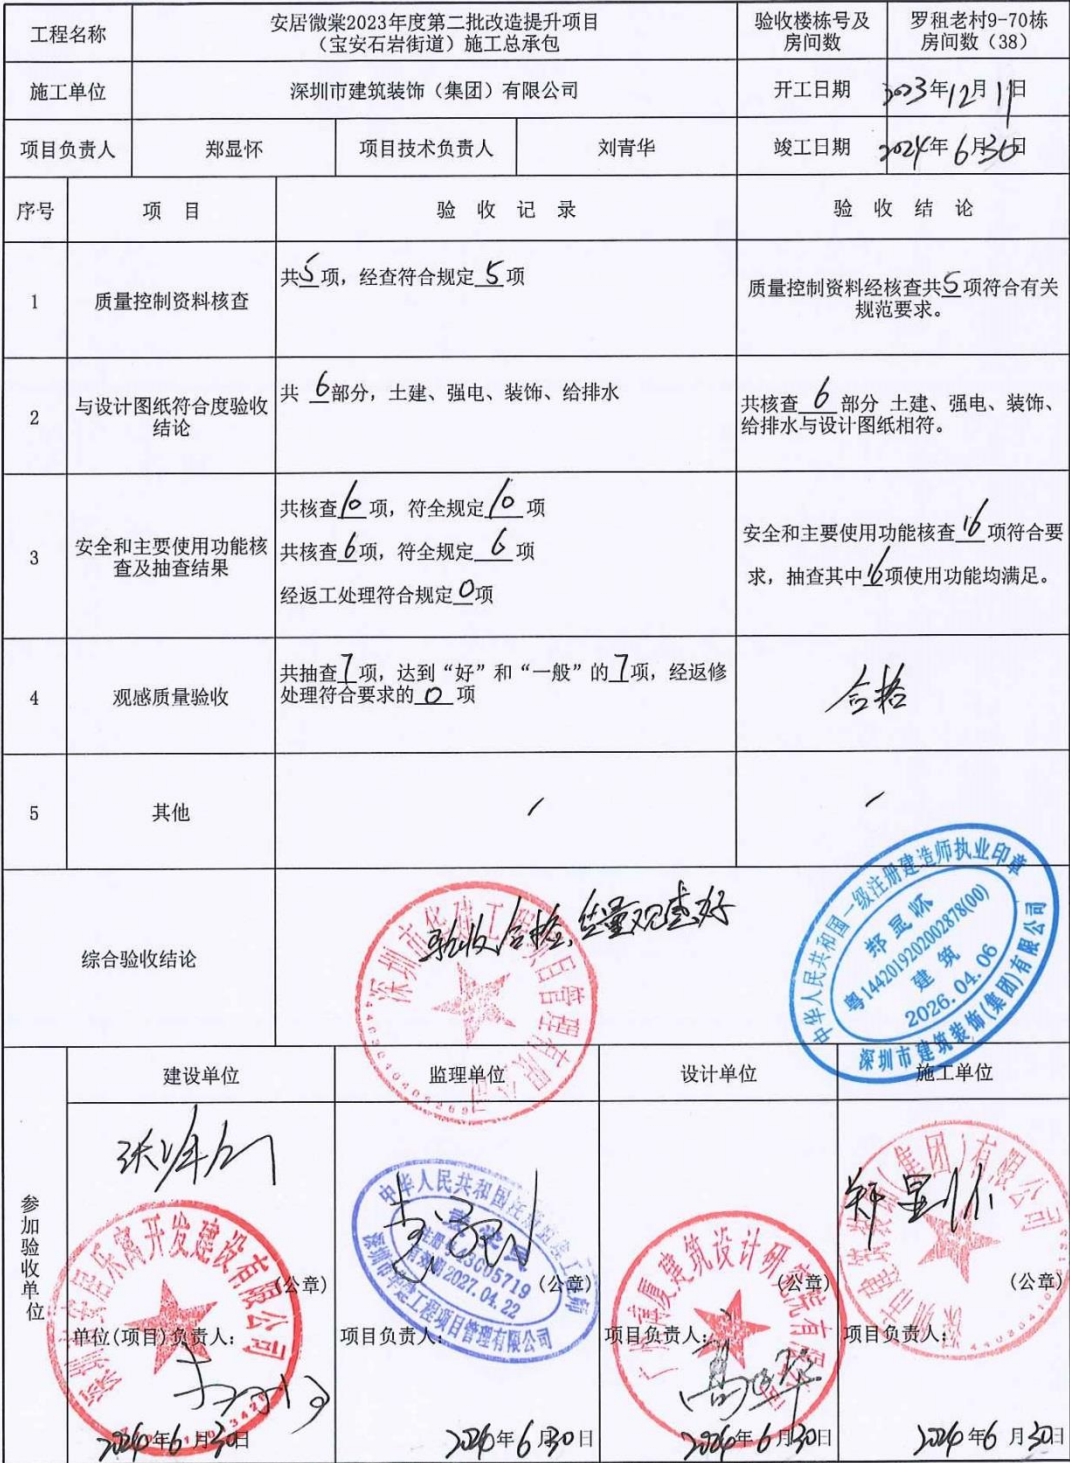 工程名称
安居微棠2023年度第二批改造提升项目
（宝安石岩街道）施工总承包
验收楼栋号及
房间数
罗租老村9-70栋
房间数（38）
施工单位
深圳市建筑装饰（集团）有限公司
开工日期
2023年12月11日
项目负责人
郑显怀
项目技术负责人
刘青华
竣工日期
2024年6月30日
序号
项 目
验 收 记 录
验 收 结 论
1
质量控制资料核查
共5项，经查符合规定 5项
质量控制资料经核查共5项符合有关
规范要求。
2
与设计图纸符合度验收
结论
共 6部分，土建、强电、装饰、给排水
共核查 6 部分 土建、强电、装饰、
给排水与设计图纸相符。
3
安全和主要使用功能核
查及抽查结果
共核查10项，符全规定10项
共核查6项，符全规定 6 项
经返工处理符合规定0项
安全和主要使用功能核查16项符合要
求，抽查其中16项使用功能均满足。
4
观感质量验收
共抽查7项，达到“好”和“一般”的7项，经返修
处理符合要求的 0 项
合格
5
其他
综合验收结论
验收合格，质量观感好
深圳市华建工程项目管理有限公司
中华人民共和国一级注册建造师执业印章
郑显怀
粤1442019202002878(00)
建筑
2026.04.06
深圳市建筑装饰(集团)有限公司
参加验收单位
建设单位
监理单位
设计单位
施工单位
郑显怀
深圳市安居乐寓开发建设有限公司
中华人民共和国注册监理工程师
有效期2027.04.22
广州南厦建筑设计研究院有限公司
深圳市建筑装饰(集团)有限公司
(公章)
(公章)
(公章)
(公章)
单位(项目)负责人：
项目负责人：
项目负责人：
项目负责人：
2024年6月30日
2024年6月30日
2024年6月30日
2024年6月30日